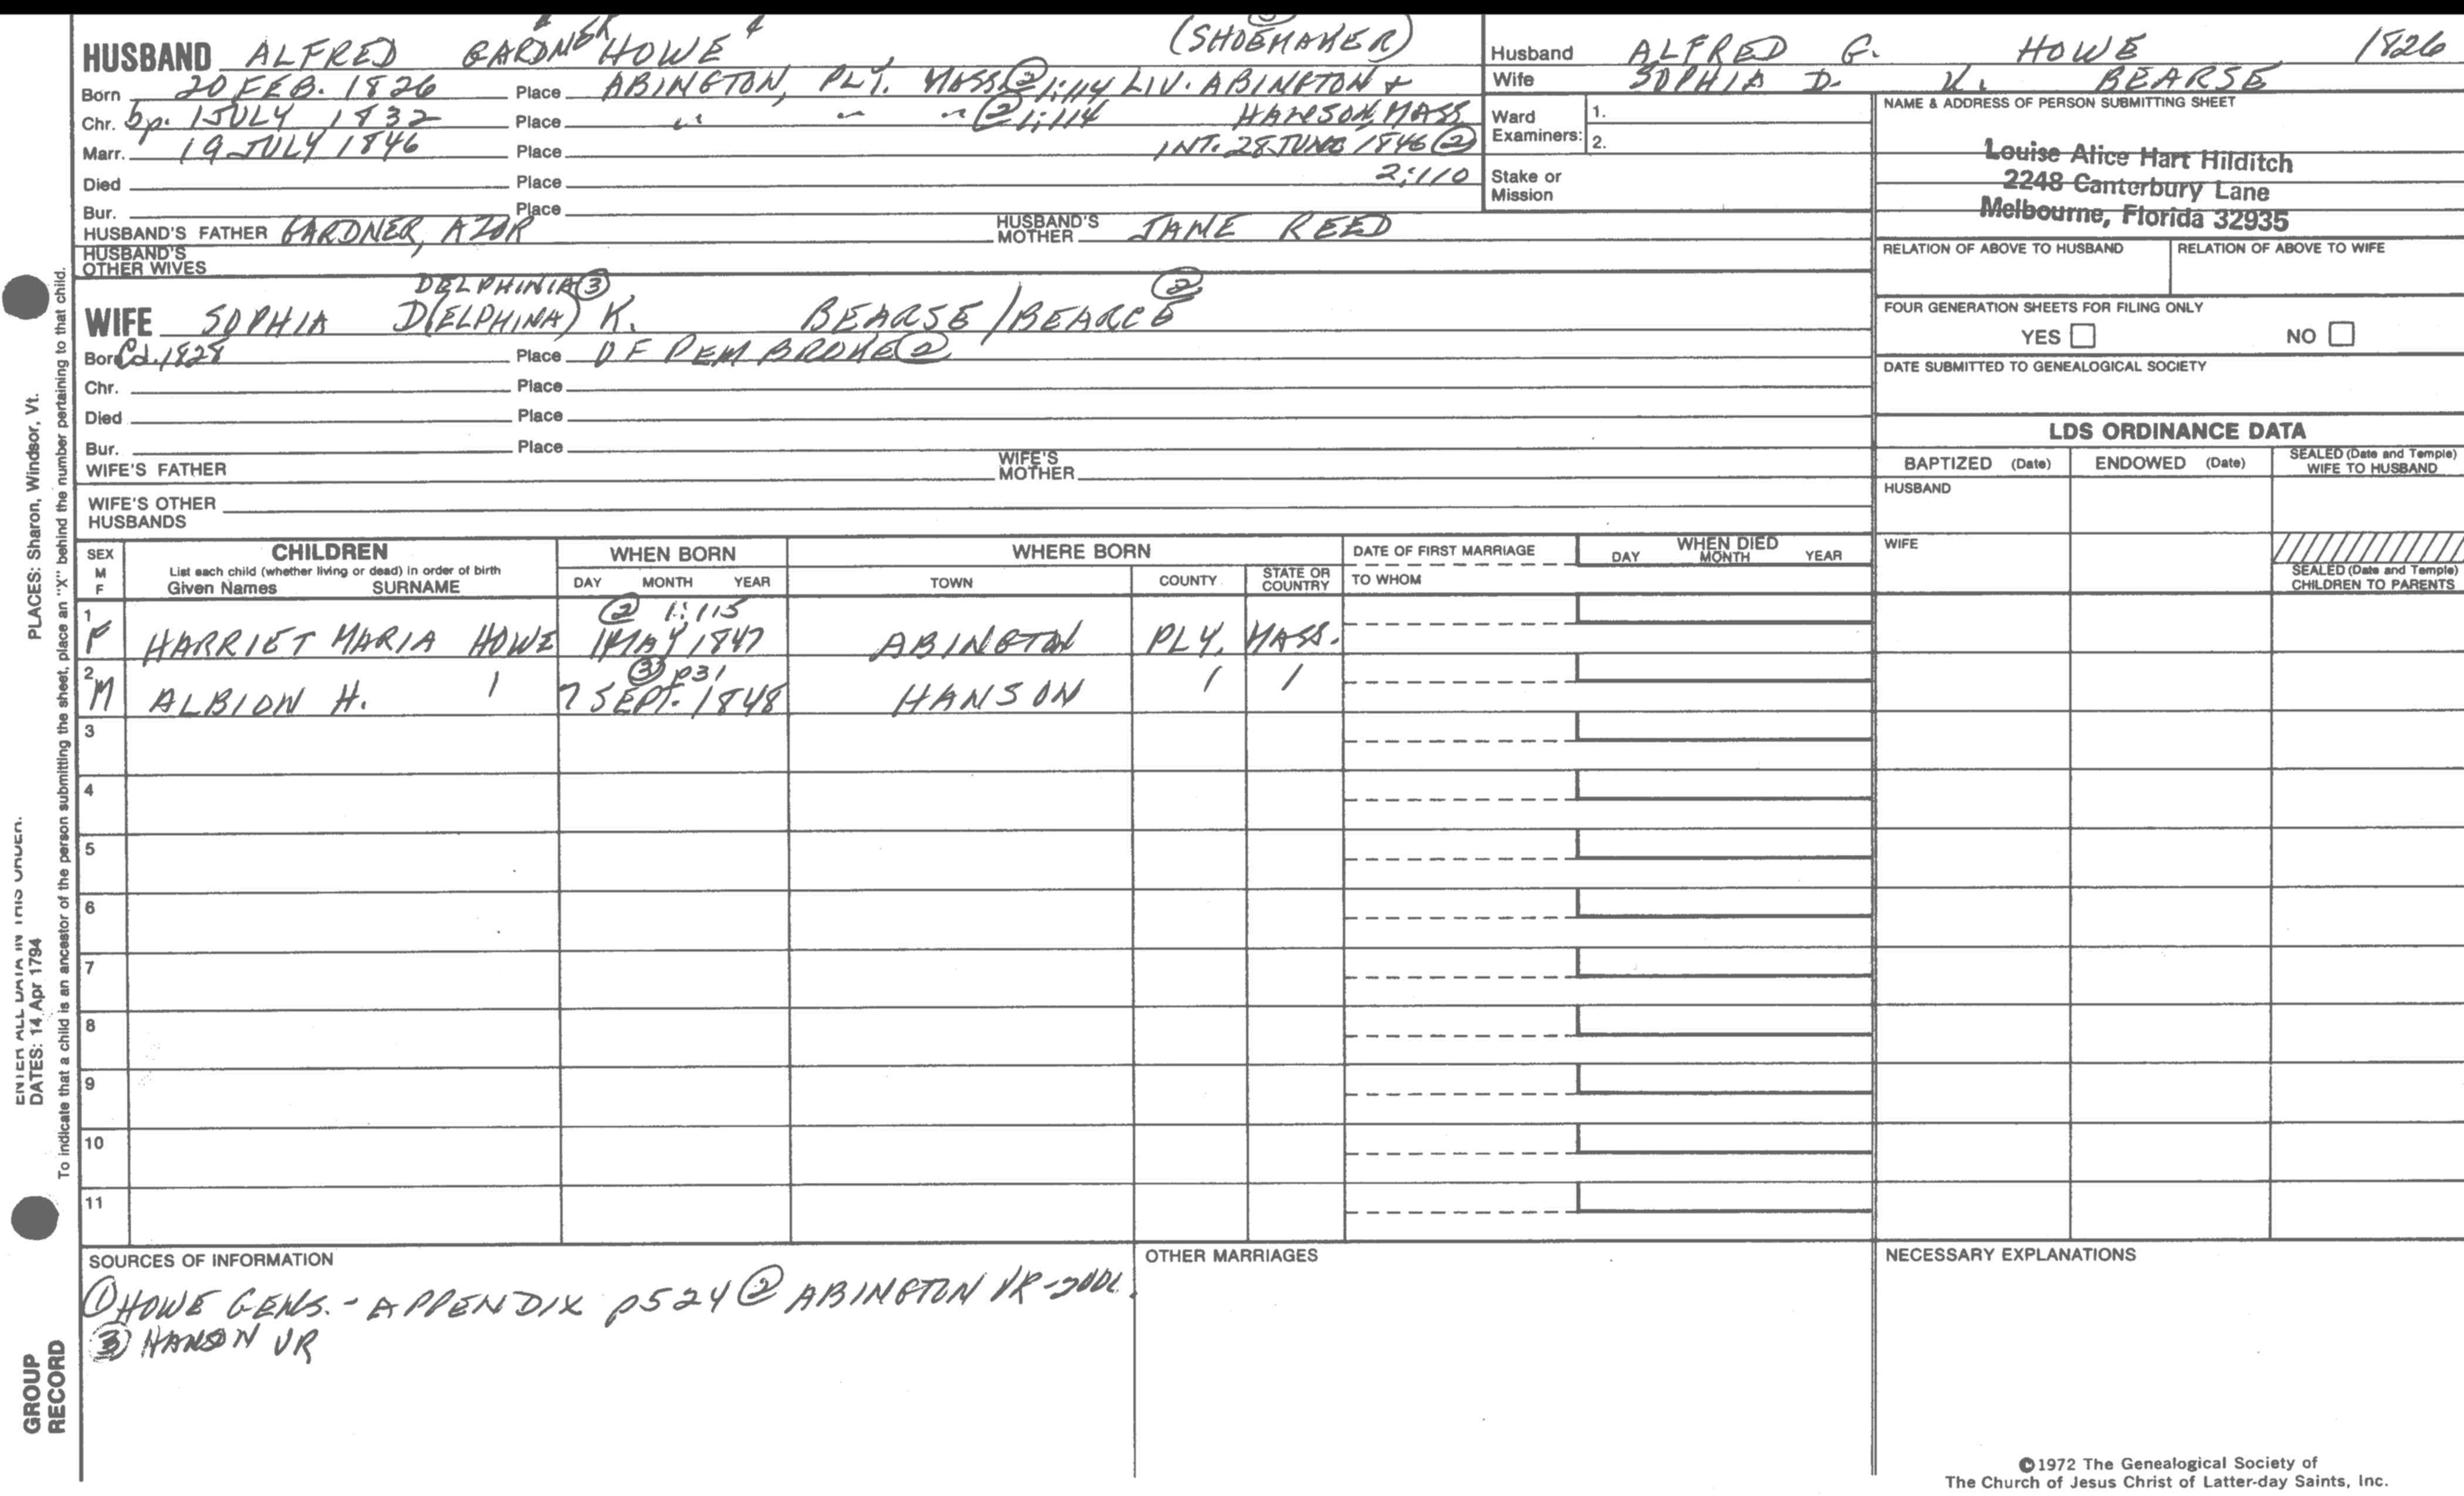 HUSBAND ALFRED GARDNER HOWE (SHOEMAKER)
Born 20 FEB. 1826 Place ABINGTON, PLY. MASS. ② 1:114 LIV. ABINGTON +
Chr. bp. 1 JULY 1832 Place " " " ② 1:114 HANSON, MASS
Marr. 19 JULY 1846 Place INT. 28 JUNE 1846 ②
Died Place 2:110
Bur. Place
HUSBAND'S FATHER GARDNER, AZOR HUSBAND'S MOTHER JANE REED
HUSBAND'S OTHER WIVES
DELPHINIA ③
WIFE SOPHIA D(ELPHINA) K. BEARSE/BEARCE ②
Born Cd. 1828 Place OF PEMBROKE ②
Chr. Place
Died Place
Bur. Place
WIFE'S FATHER WIFE'S MOTHER
WIFE'S OTHER HUSBANDS
Husband ALFRED G. HOWE 1826
Wife SOPHIA D. K. BEARSE
Ward Examiners: 1.
2.
Stake or Mission
NAME & ADDRESS OF PERSON SUBMITTING SHEET
Louise Alice Hart Hilditch
2248 Canterbury Lane
Melbourne, Florida 32935
RELATION OF ABOVE TO HUSBAND RELATION OF ABOVE TO WIFE
FOUR GENERATION SHEETS FOR FILING ONLY
YES NO
DATE SUBMITTED TO GENEALOGICAL SOCIETY
LDS ORDINANCE DATA
BAPTIZED (Date) ENDOWED (Date) SEALED (Date and Temple) WIFE TO HUSBAND
HUSBAND
WIFE
SEALED (Date and Temple) CHILDREN TO PARENTS
SEX M F
CHILDREN
List each child (whether living or dead) in order of birth
Given Names SURNAME
WHEN BORN
DAY MONTH YEAR
WHERE BORN
TOWN COUNTY STATE OR COUNTRY
DATE OF FIRST MARRIAGE
TO WHOM
WHEN DIED
DAY MONTH YEAR
② 1:115
1 F HARRIET MARIA HOWE 1 MAY 1847 ABINGTON PLY. MASS.
③ p31
2 M ALBION H. / 7 SEPT. 1848 HANSON / /
3
4
5
6
7
8
9
10
11
SOURCES OF INFORMATION
① HOWE GENS. - APPENDIX p524 ② ABINGTON VR-
③ HANSON VR
OTHER MARRIAGES
NECESSARY EXPLANATIONS
©1972 The Genealogical Society of
The Church of Jesus Christ of Latter-day Saints, Inc.
ENTER ALL DATA IN THIS ORDER.
DATES: 14 Apr 1794
PLACES: Sharon, Windsor, Vt.
To indicate that a child is an ancestor of the person submitting the sheet, place an "X" behind the number pertaining to that child.
GROUP
RECORD